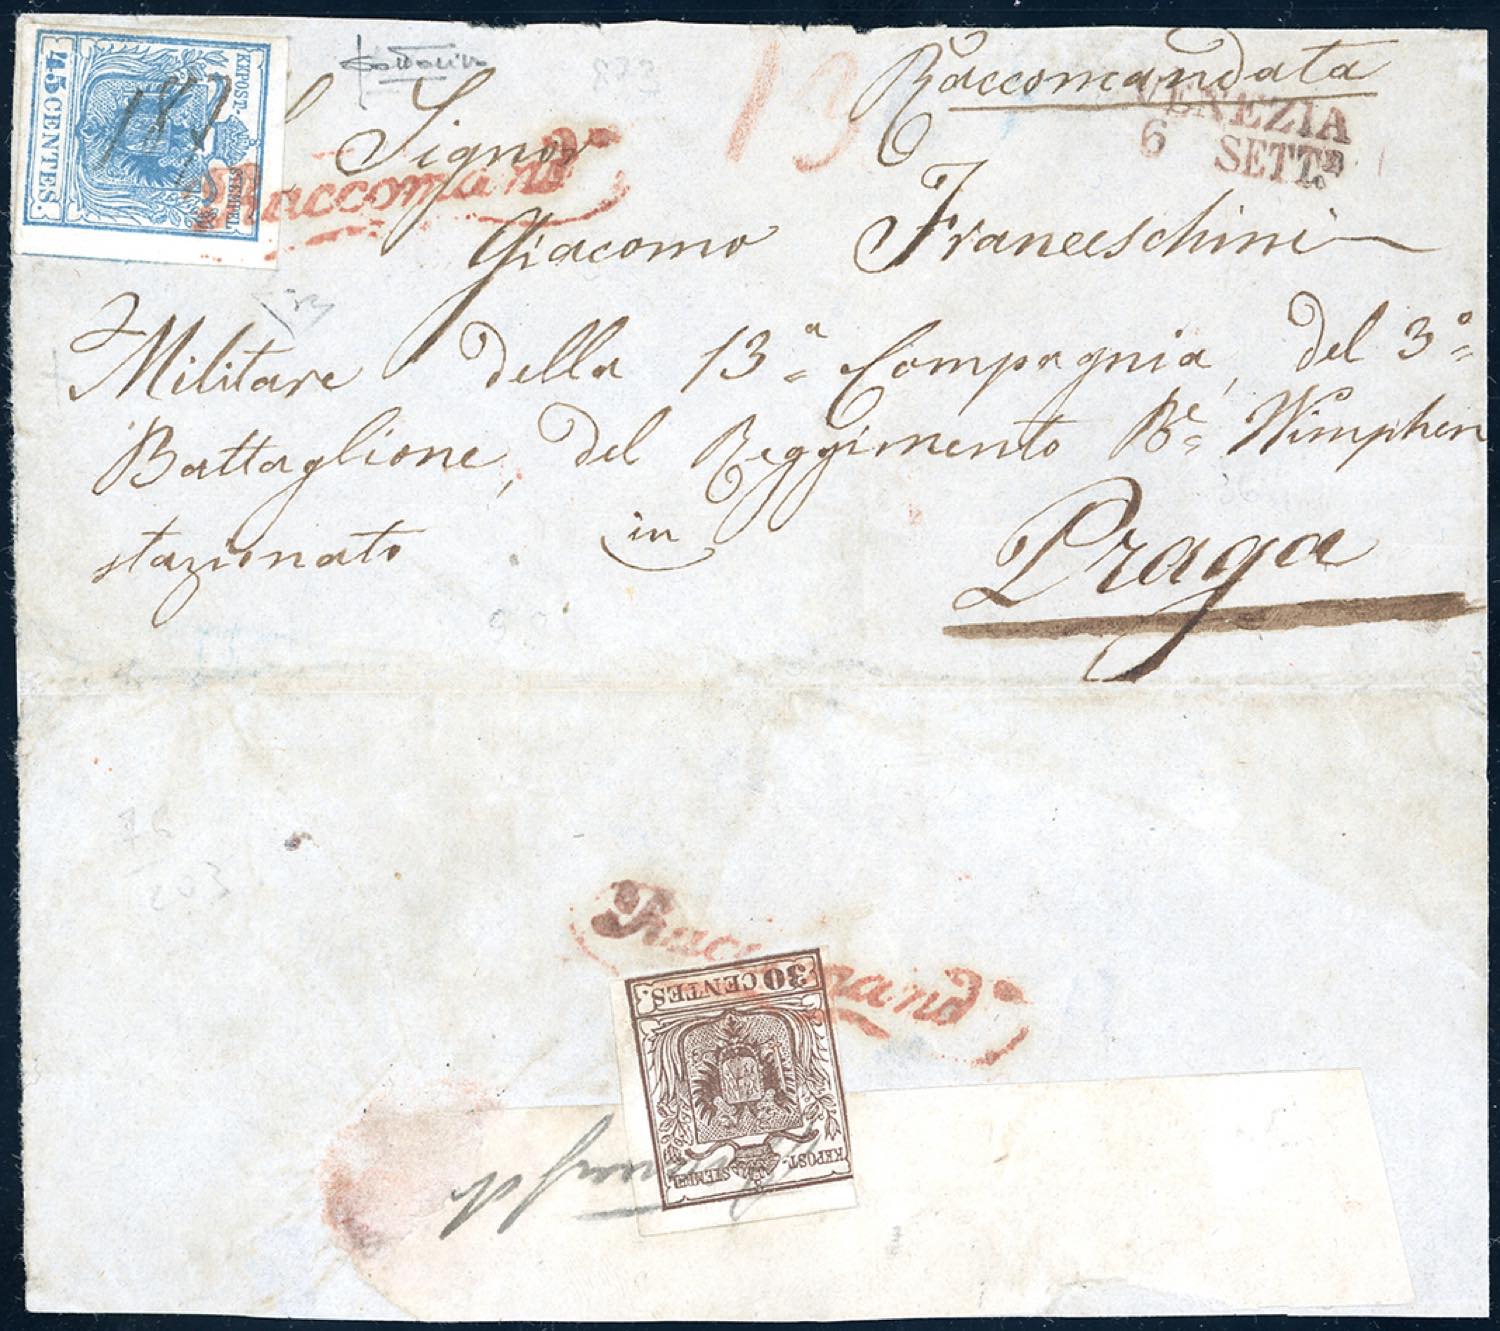 Raccomandata
VENEZIA
6 SETT.
13
KKPOST-
STEMPEL
45 CENTES.
Signor
Raccomand
Giacomo Franceschini
Militare della 13ª Compagnia, del 3º
Battaglione, del Reggimento Bᵉ Wimphen
stazionato in
Praga
Raccomand
30 CENTES.
KKPOST-
STEMPEL